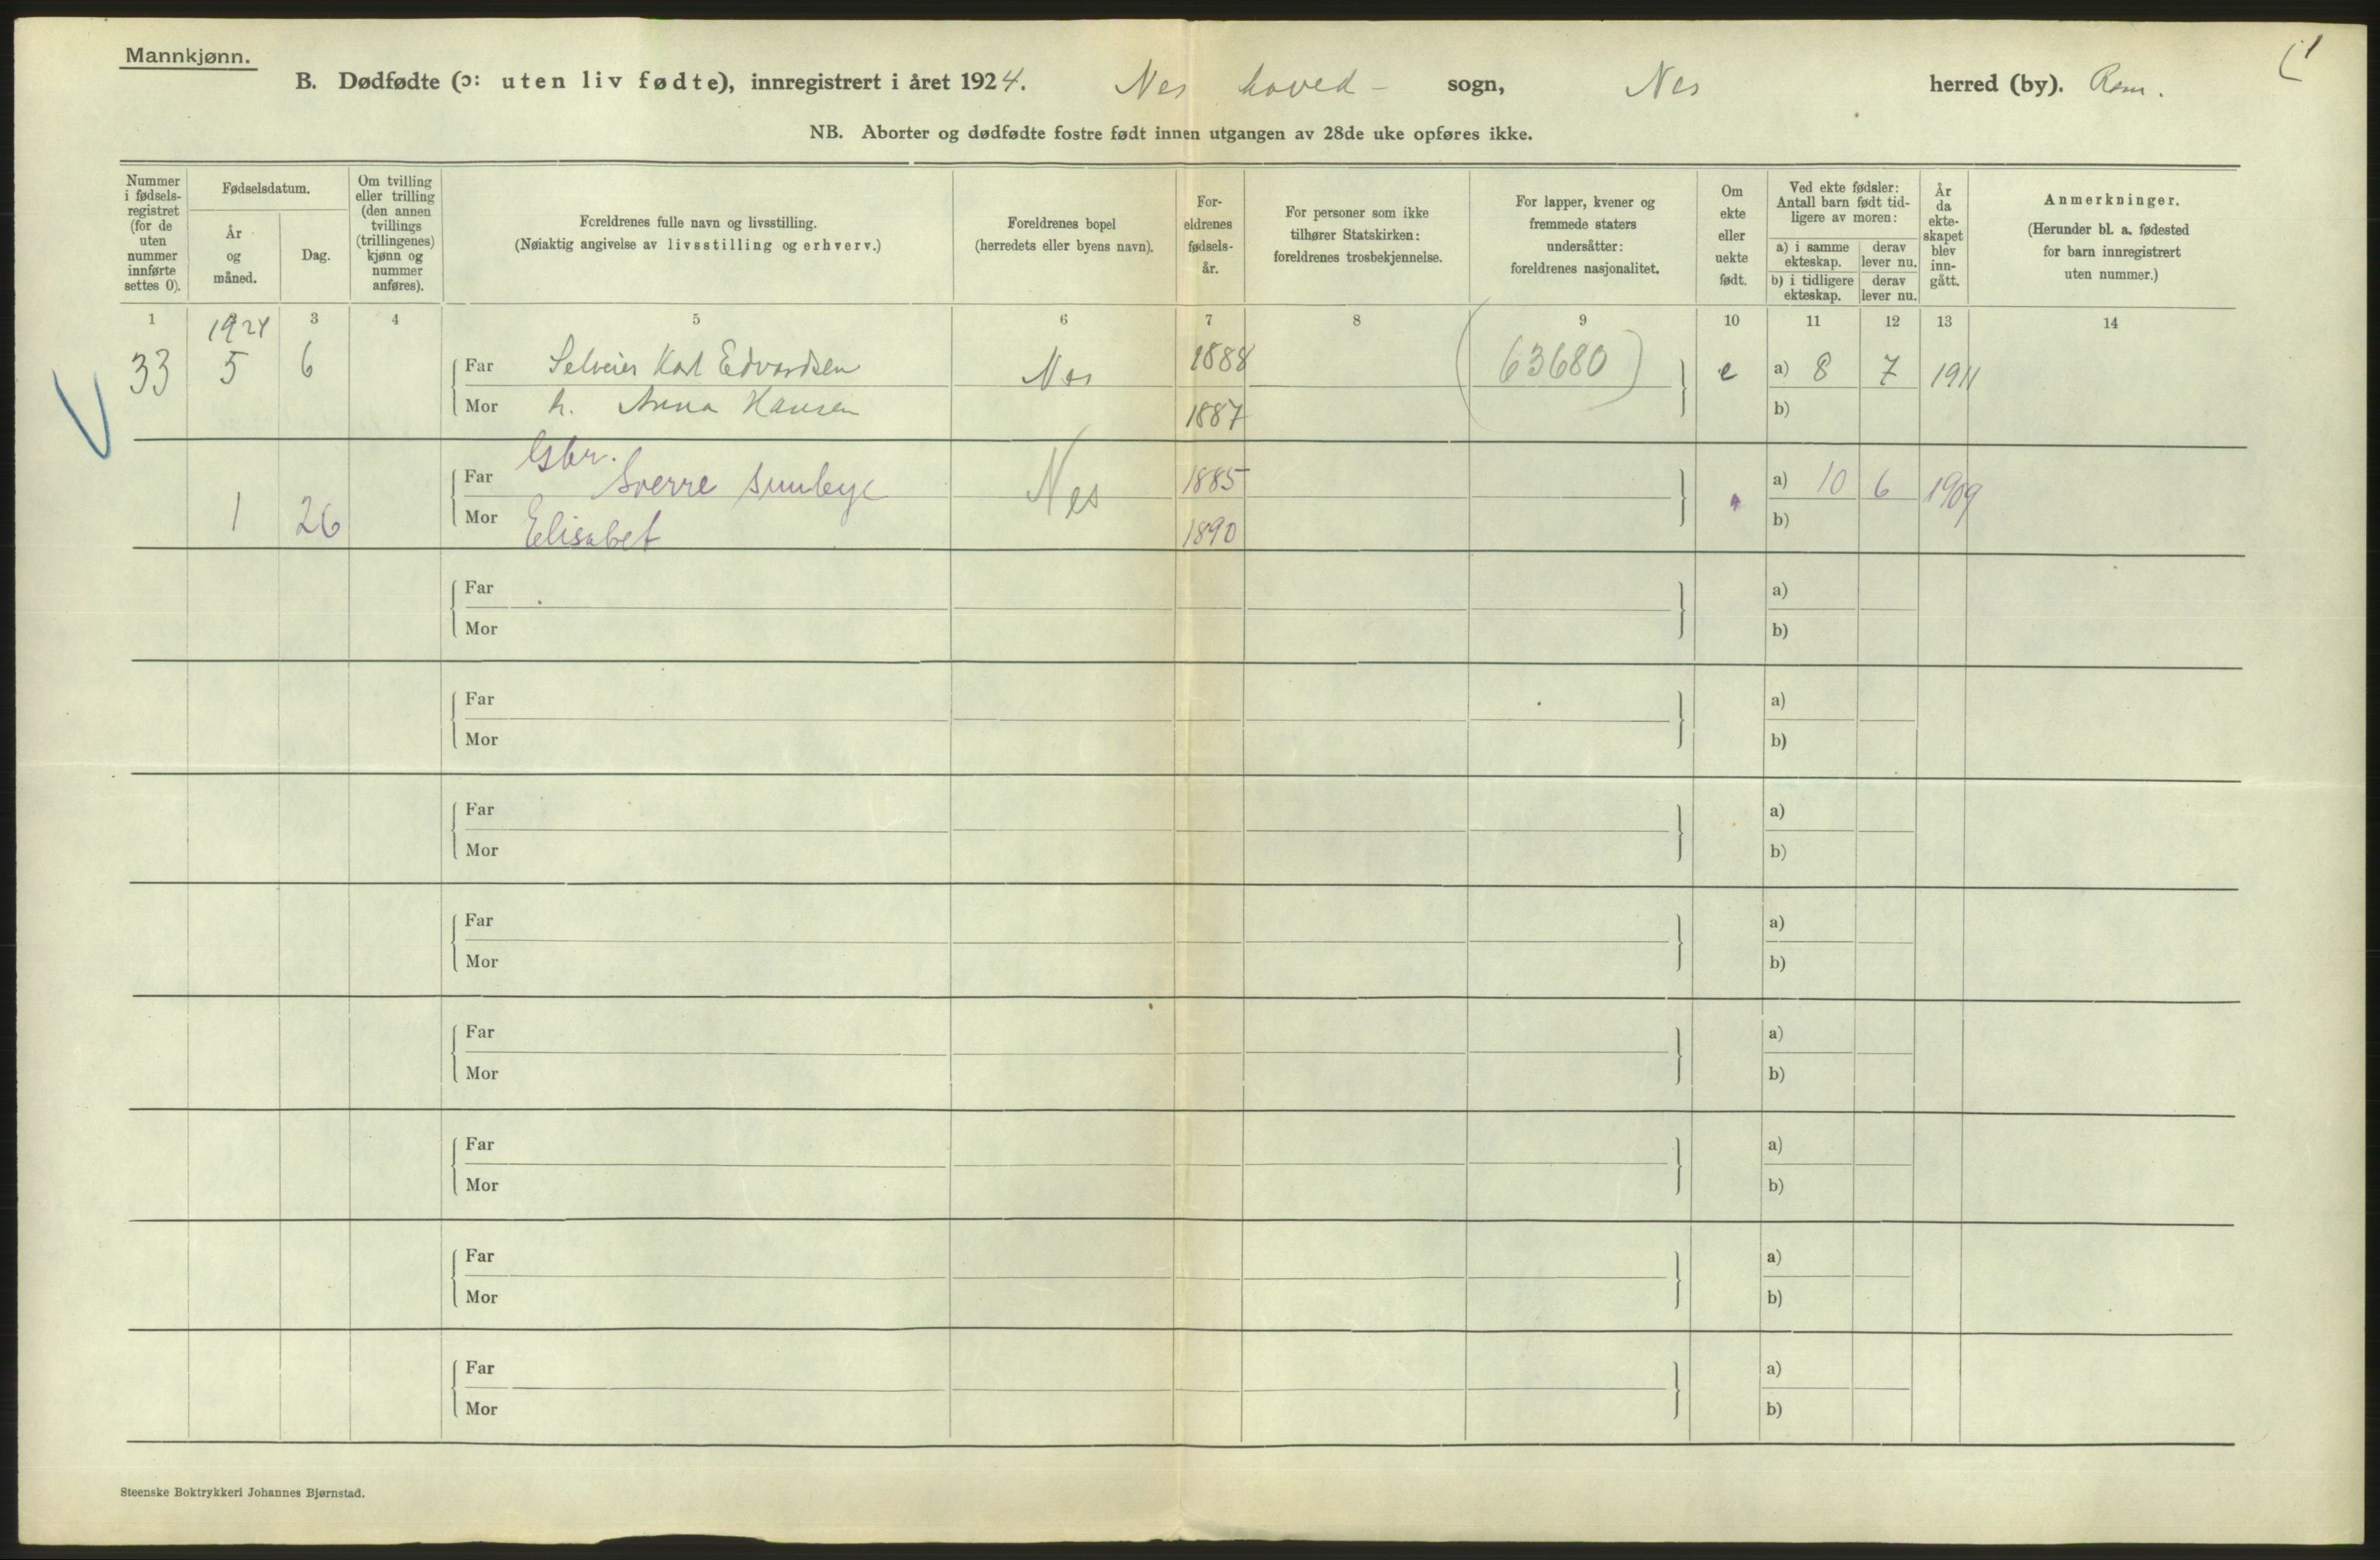 Mannkjønn.
B. Dødfødte (ɔ: uten liv fødte), innregistrert i året 1924. Nes hoved- sogn, Nes herred (by). Rom.
NB. Aborter og dødfødte fostre født innen utgangen av 28de uke opføres ikke.
Nummer i fødsels-registret (for de uten nummer innførte settes 0).
Fødselsdatum.
År og måned.
Dag.
Om tvilling eller trilling (den annen tvillings (trillingenes) kjønn og nummer anføres).
Foreldrenes fulle navn og livsstilling.
(Nøiaktig angivelse av livsstilling og erhverv.)
Foreldrenes bopel
(herredets eller byens navn).
For-eldrenes fødsels-år.
For personer som ikke tilhører Statskirken: foreldrenes trosbekjennelse.
For lapper, kvener og fremmede staters undersåtter: foreldrenes nasjonalitet.
Om ekte eller uekte født.
Ved ekte fødsler: Antall barn født tid-ligere av moren:
a) i samme ekteskap.
derav lever nu.
b) i tidligere ekteskap.
derav lever nu.
År da ekte-skapet blev inn-gått.
Anmerkninger.
(Herunder bl. a. fødested for barn innregistrert uten nummer.)
1 2 3 4 5 6 7 8 9 10 11 12 13 14
1924
33 5 6 Far Selveier Karl Edvardsen Nes 1888 (63680) e a) 8 7 1911
Mor h. Anna Hansen 1887 b)
Gbr.
Far Sverre Sunbye Nes 1885 a) 10 6 1909
1 26 Mor Elisabet 1890 b)
Far a)
Mor b)
Far a)
Mor b)
Far a)
Mor b)
Far a)
Mor b)
Far a)
Mor b)
Far a)
Mor b)
Far a)
Mor b)
Far a)
Mor b)
Steenske Boktrykkeri Johannes Bjørnstad.